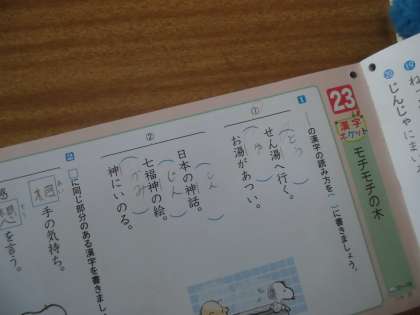 23
漢字
ポケット
モチモチの木
1
の漢字の読み方を( )に書きましょう。
①
せん湯に行く。
とう
お湯があつい。
ゆ
②
日本の神話。
しん
七福神の絵。
じん
神にいのる。
かみ
2
□に同じ部分のある漢字を書きましょう
あい
相
手の気持ち。
想
を言う。
⑲
⑳
じんじゃにま